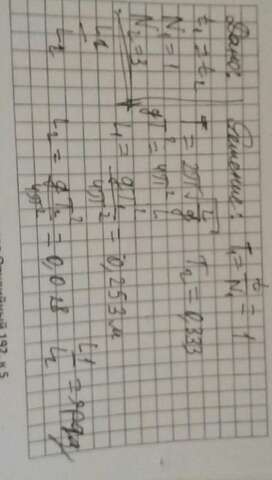 Дано:
t₁ = t₂
N₁ = 1
N₂ = 3
L₁
L₂
Решение: T₁ = t/N₁ = 1
T = 2π√(L/g) T₂ = 0,333
gT² = 4π² L
L₁ = gT₁²/4π² = 0,253 м
L₂ = gT₂²/4π² = 0,028
L₁/L₂ =